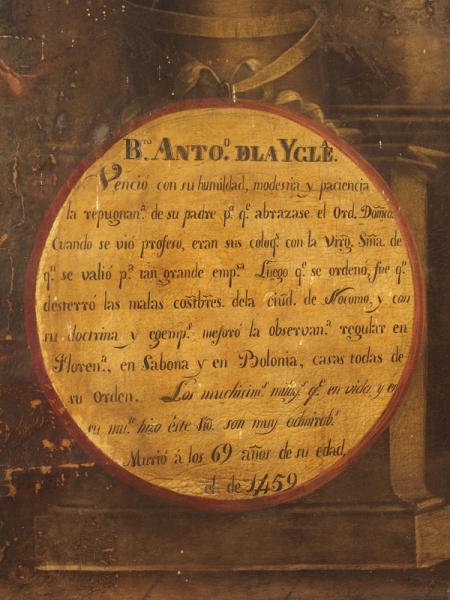 B.to ANTO.o DLA YGLÂ.
Venció con su humildad, modestia y paciencia
la repugnan.a de su padre p.a q.e abrazase el Ord. Domco.
Cuando se vió profeso, eran sus coloq.s con la Virg. Sma. de
q.n se valió p.a tan grande emp.a Luego q.e se ordenó, fue q.n
desterró las malas costbres. dela ciud. de Nocomo, y con
su doctrina y egemp.o mejoró la observan.a regular en
Floren.a, en Sabona y en Bolonia, casas todas de
su Orden. Los muchisim.s q.e en vida y en
su mu.te hizo éste Sto. son muy admirab.s
Murió á los 69 años de su edad,
el de 1459